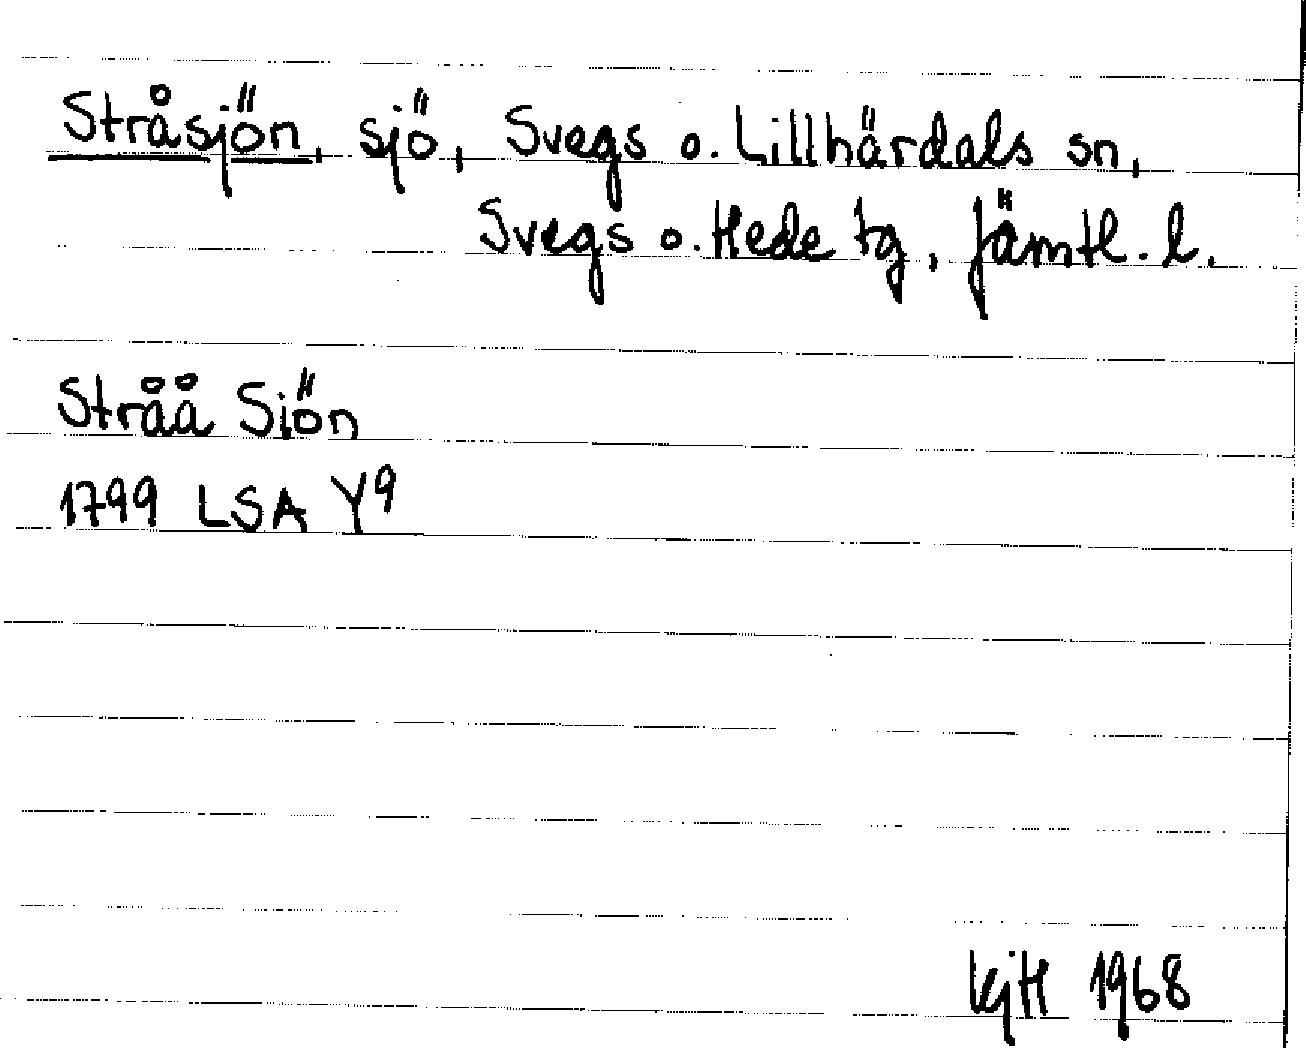 Stråsjön, sjö, Svegs o. Lillhärdals sn,
Svegs o. Hede tg, Jämtl. l.
Stråå Siön
1799 LSA Y9
KjH 1968